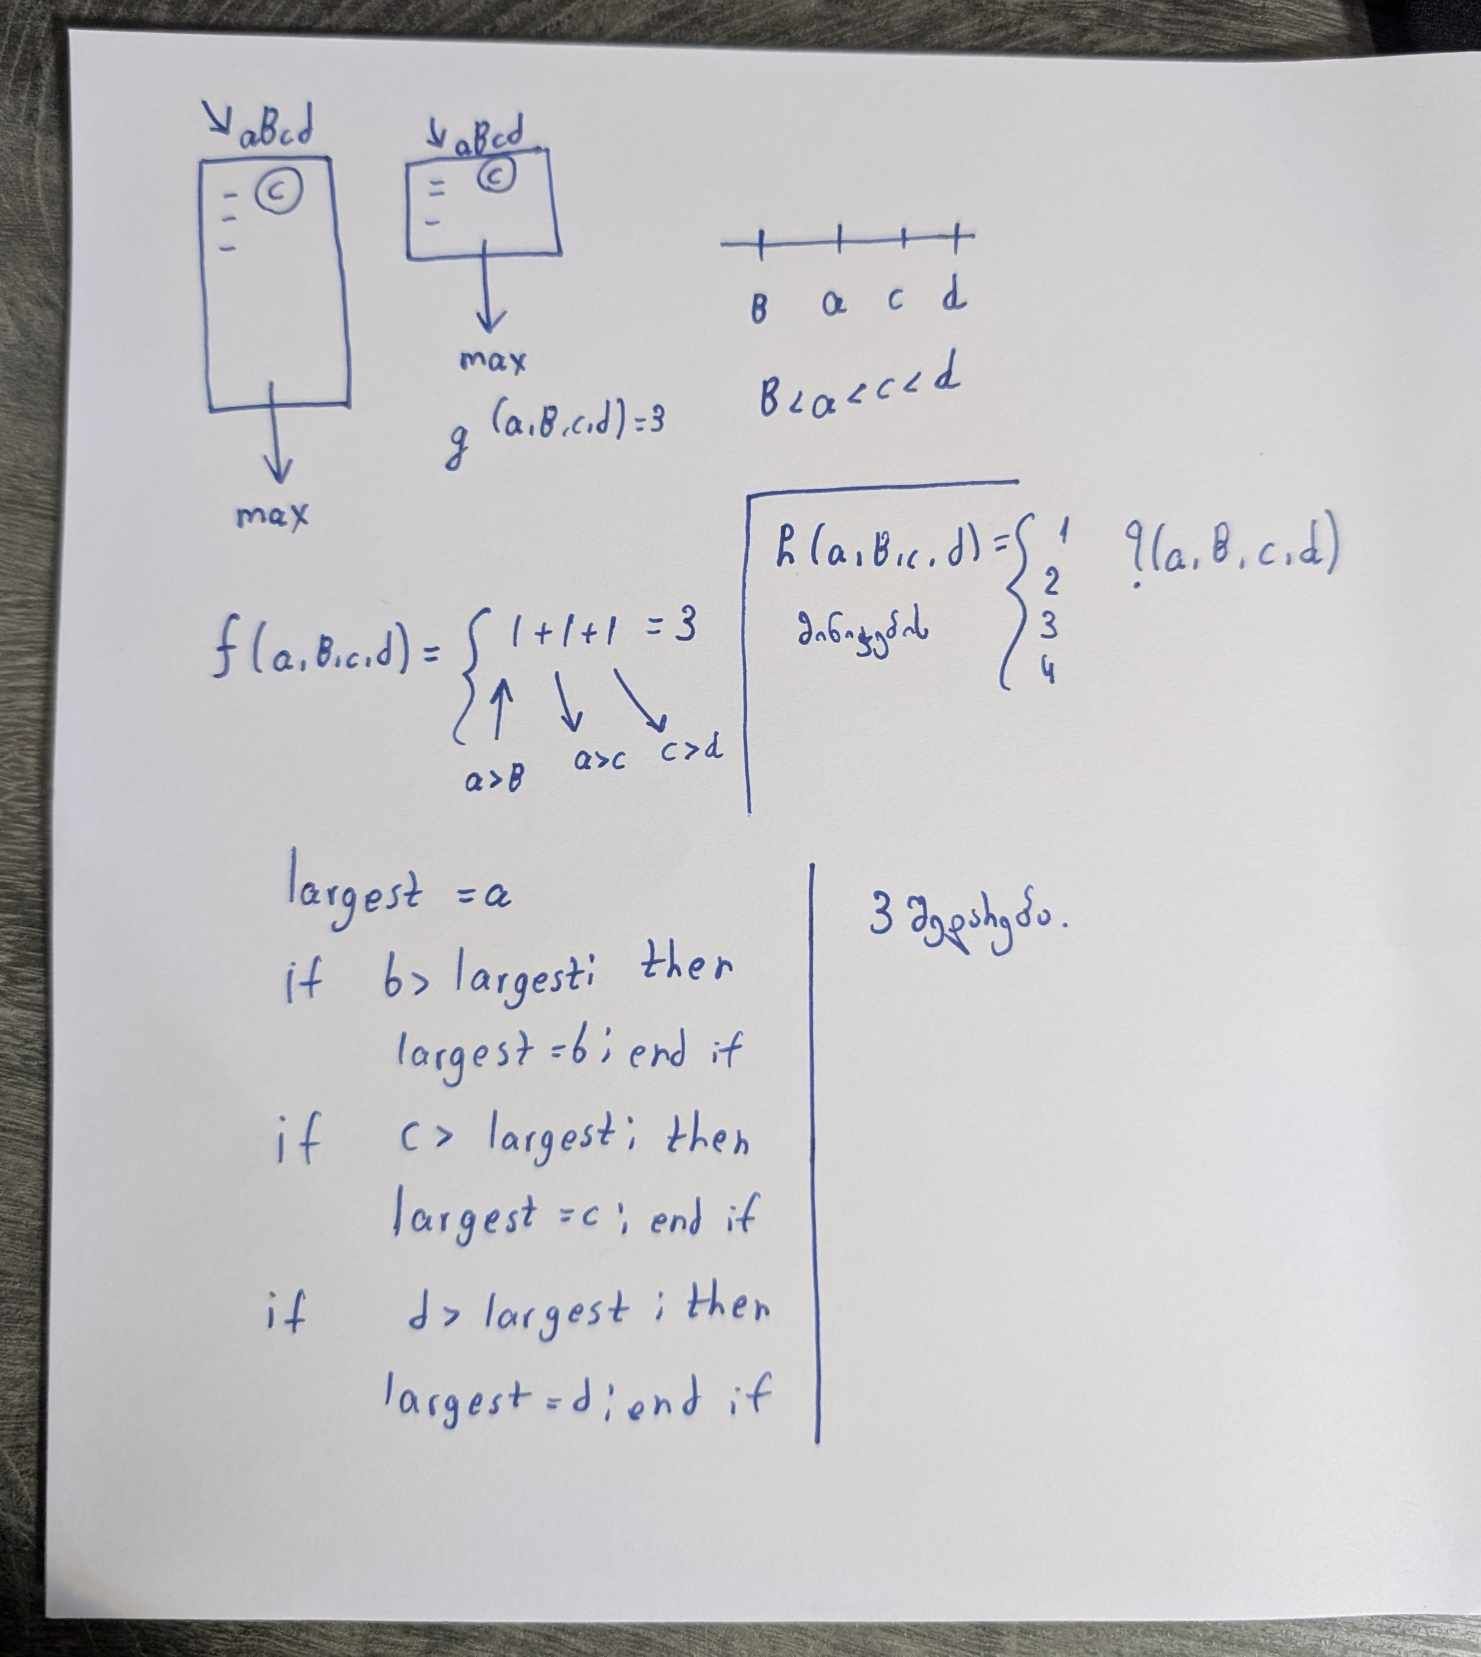 aBcd
C
max
aBcd
C
max
g (a,B,c,d)=3
B a c d
B<a<c<d
f(a,B,c,d)= { 1+1+1 = 3
a>B a>c c>d
h(a,B,c,d)= { 1 2 3 4
მინიჭების
?(a,B,c,d)
largest = a
if b> largest; then
largest =b; end if
if c> largest; then
largest =c; end if
if d> largest; then
largest =d; end if
3 შედარება.